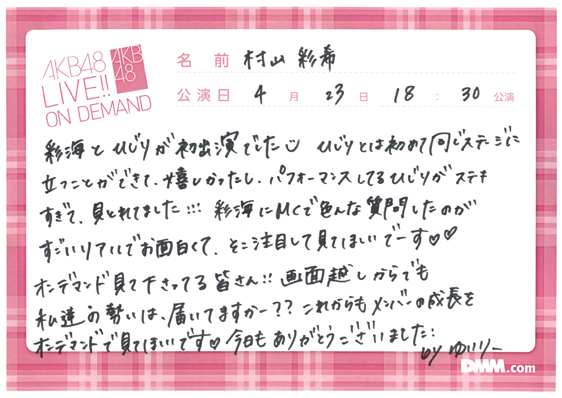 AKB48
LIVE!!
ON DEMAND
AKB
48
名 前 村山 彩希
公演日 4 月 23 日 18 : 30 公演
彩海と ひじりが初出演でした ひじりとは初めて同じステージに
立つことができて、嬉しかったし、パフォーマンスしてるひじりがステキ
すぎて、見とれてました!!! 彩海にMCで色んな質問したのが
すごいリアルでお面白くて、そこ注目して見てほしいでーす♡♡
オンデマンド見て下さってる皆さん!! 画面越しからでも
私達の勢いは、届いてますかー?? これからもメンバーの成長を
オンデマンドで見てほしいです♡ 今日もありがとうございました!
by ゆいりー
DMM.com